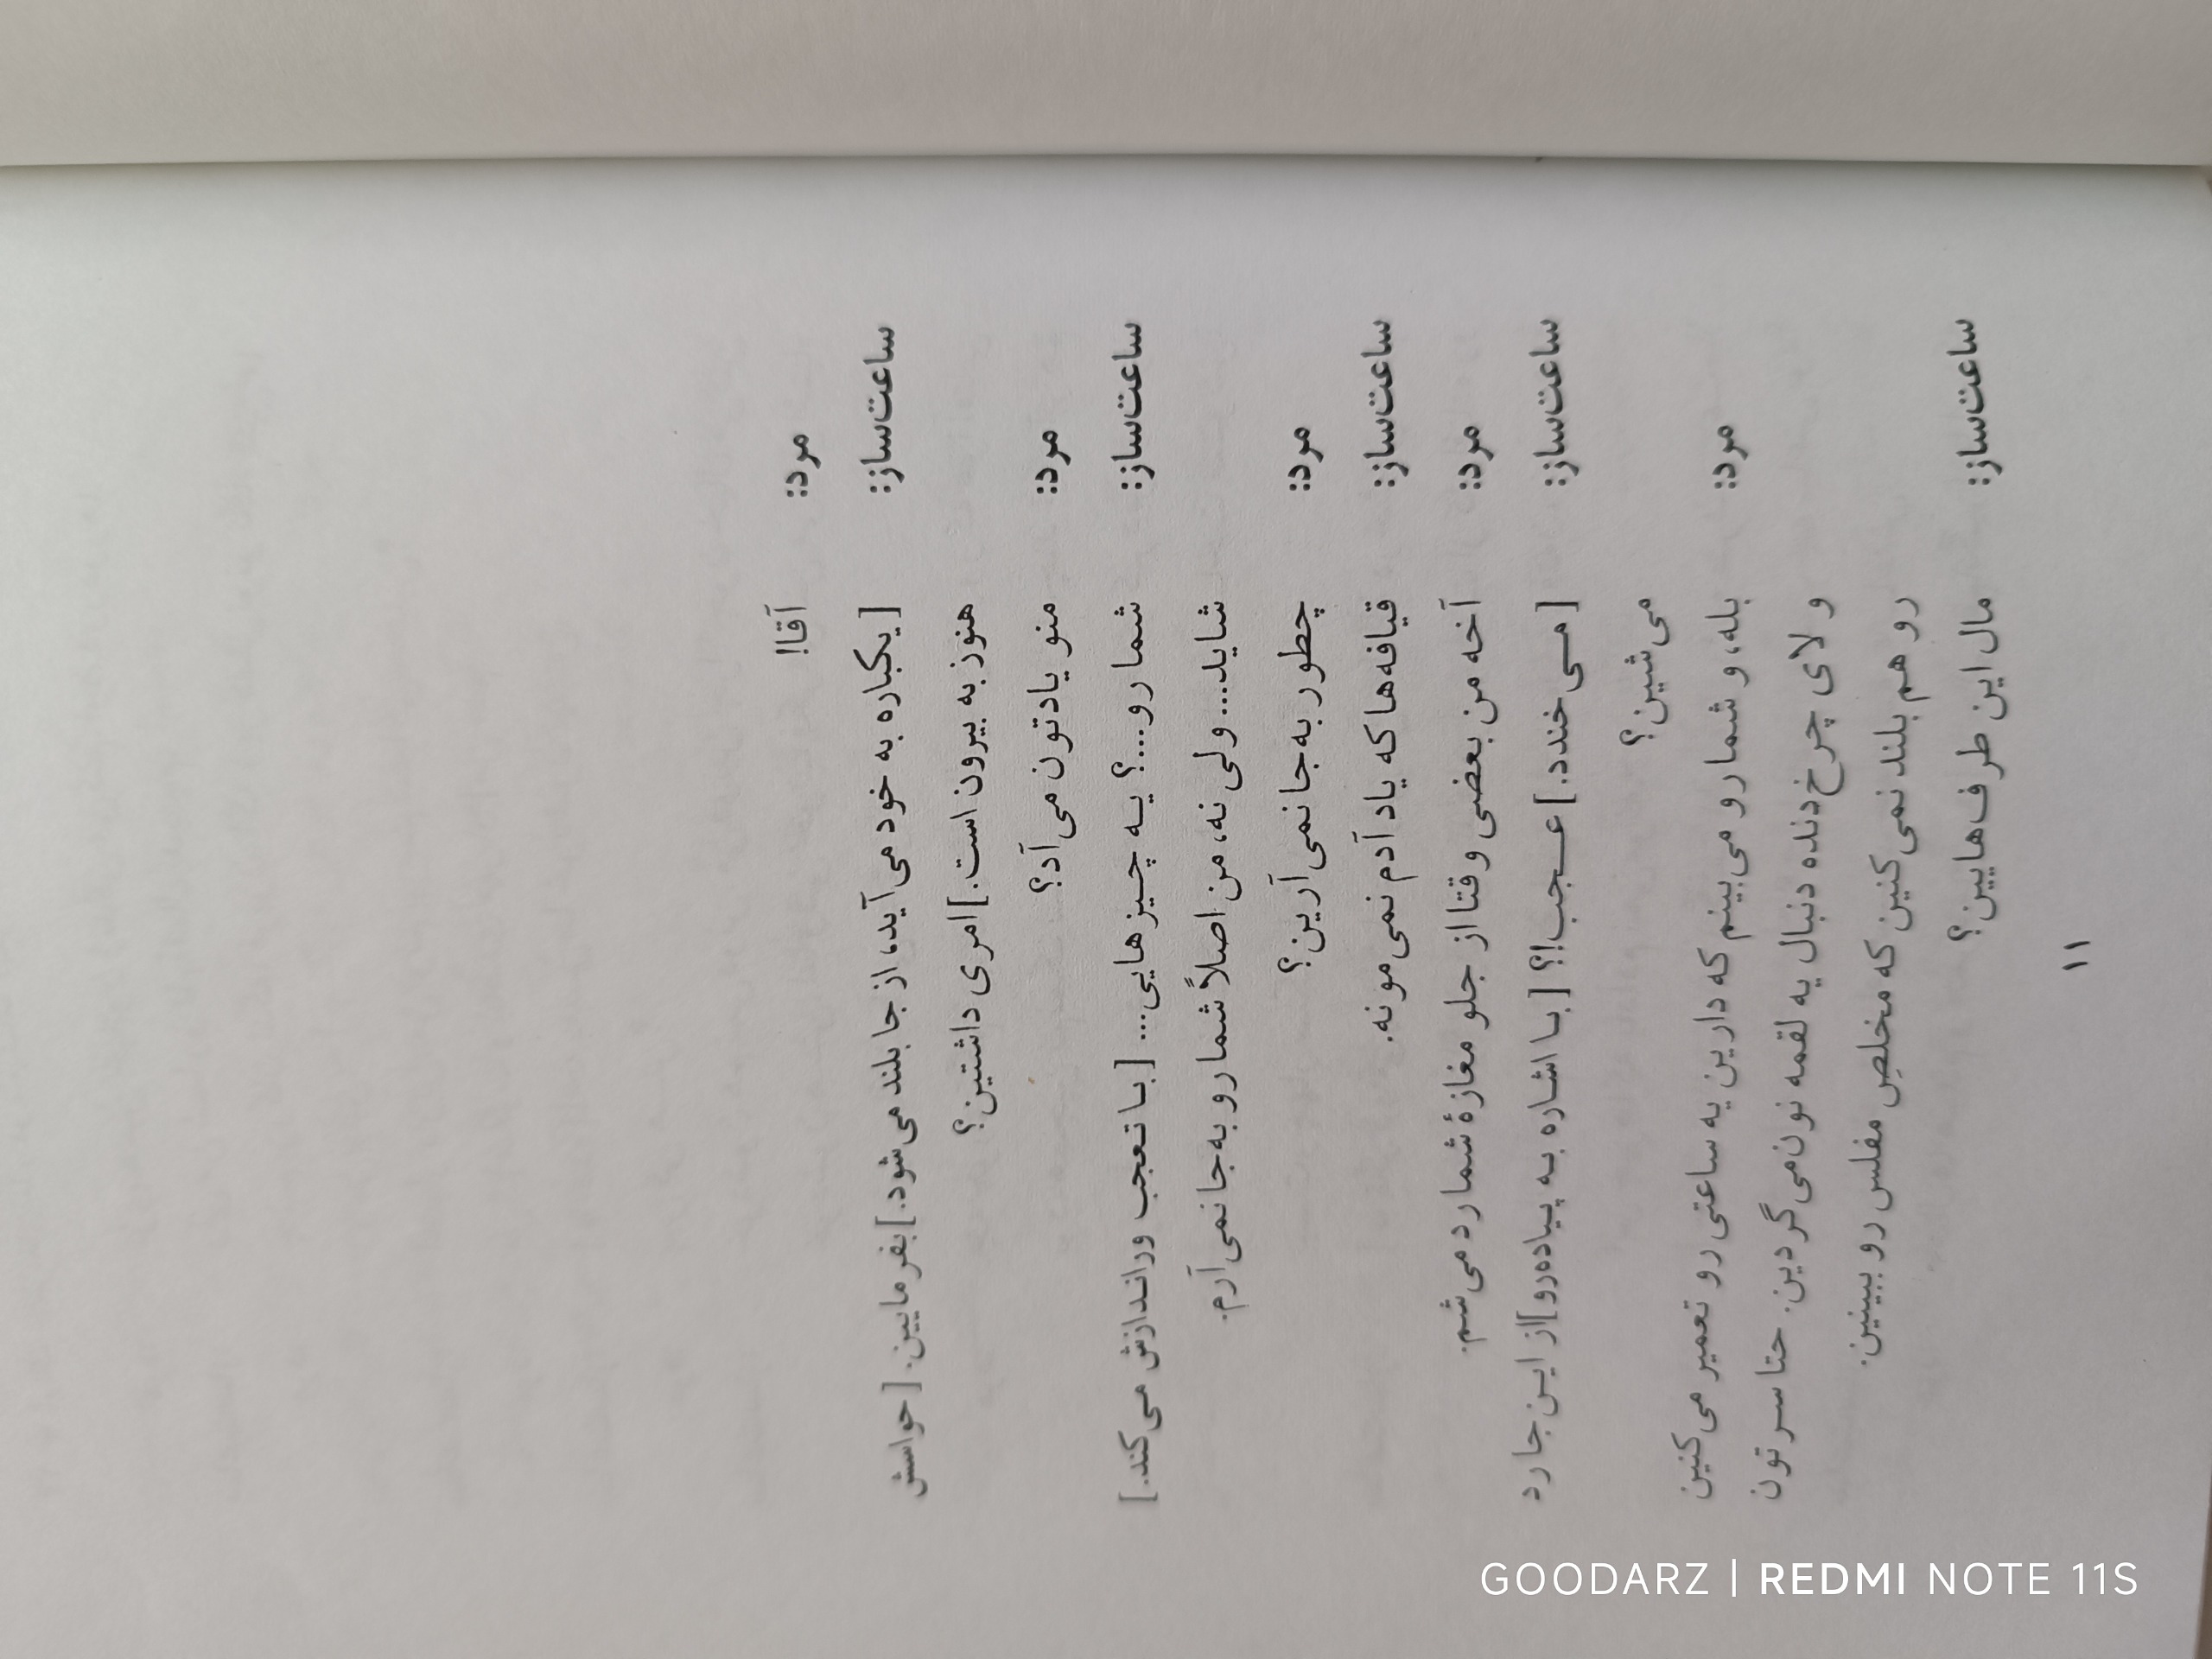 مرد: آقا!
ساعت‌ساز: [یکباره به خود می‌آید، از جا بلند می‌شود.] بفرمایین. [حواسش
هنوز به بیرون است.] امری داشتین؟
مرد: منو یادتون می‌آد؟
ساعت‌ساز: شما رو...؟ یه چیزهایی... [با تعجب وراندازش می‌کند.]
شاید... ولی نه، من اصلاً شما رو به‌جا نمی‌آرم.
مرد: چطور به‌جا نمی‌آرین؟
ساعت‌ساز: قیافه‌ها که یاد آدم نمی‌مونه.
مرد: آخه من بعضی وقتا از جلو مغازهٔ شما رد می‌شم.
ساعت‌ساز: [می‌خندد.] عجب!؟ [با اشاره به پیاده‌رو] از این جا رد
می‌شین؟
مرد: بله، و شما رو می‌بینم که دارین یه ساعتی رو تعمیر می‌کنین
و لای چرخ‌دنده دنبال یه لقمه نون می‌گردین. حتا سرتون
رو هم بلند نمی‌کنین که مخلصِ مفلس رو ببینین.
ساعت‌ساز: مال این طرف‌هایین؟
۱۱
GOODARZ | REDMI NOTE 11S